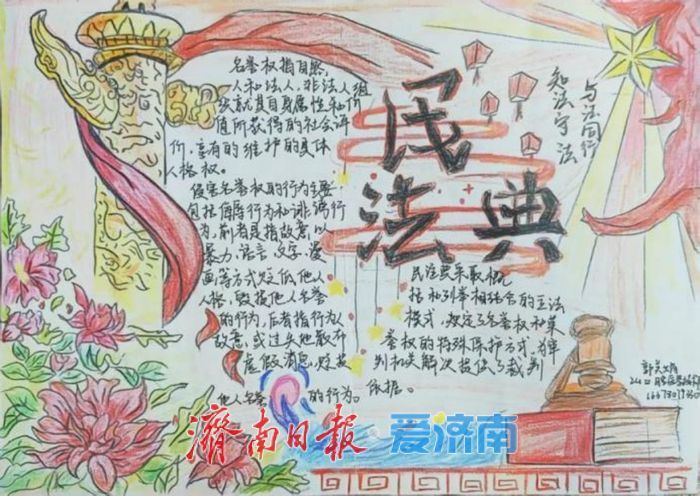 名誉权指自然
人和法人、非法人组
织就其自身属性和价
值所获得的社会评
价，享有的维护的具体
人格权。
侵害名誉权的行为主要
包括侮辱行为和诽谤行
为，前者是指故意以
暴力、语言、文字、漫
画等方式贬低他人
人格，毁损他人名誉
的行为，后者指行为人
故意，或过失地散布
虚假消息，贬损
他人名誉的行为。
民
法典
知法守法
与法同行
民法典采取概
括和列举相结合的立法
模式，规定了名誉权和荣
誉权的特殊保护方式，为审
判机关解决提供了裁判
依据。
济南日报 爱济南